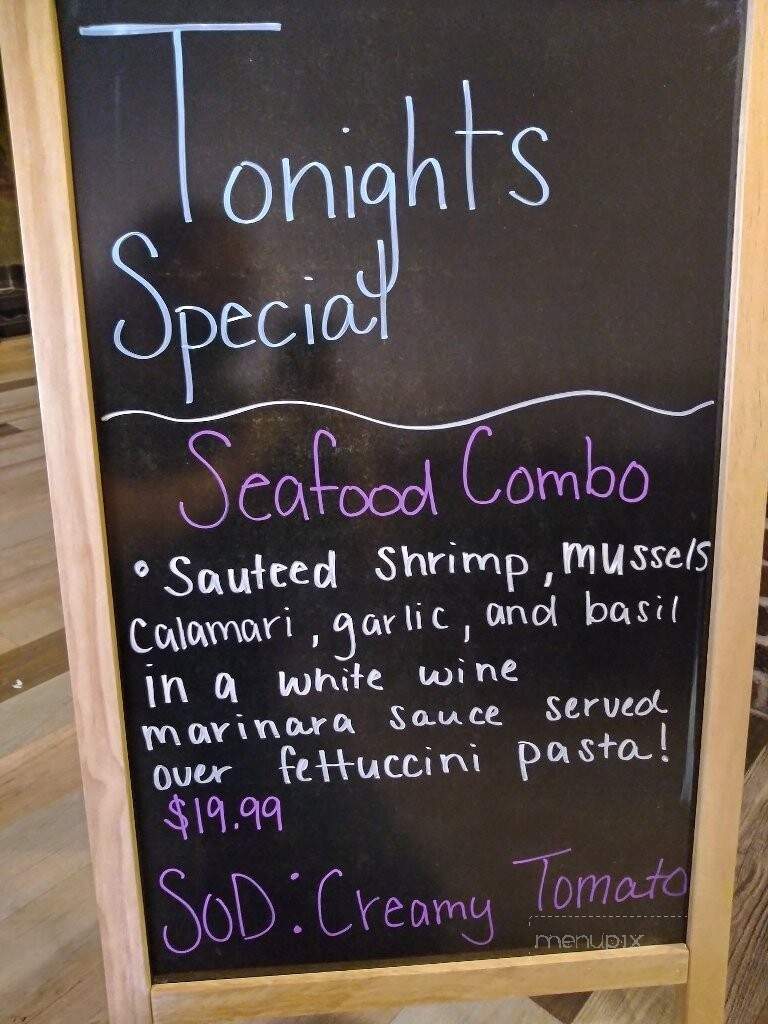 Tonights
Special
Seafood Combo
• Sauteed shrimp, mussels
calamari, garlic, and basil
in a white wine
marinara sauce served
over fettuccini pasta!
$19.99
SOD: Creamy Tomato
menupix